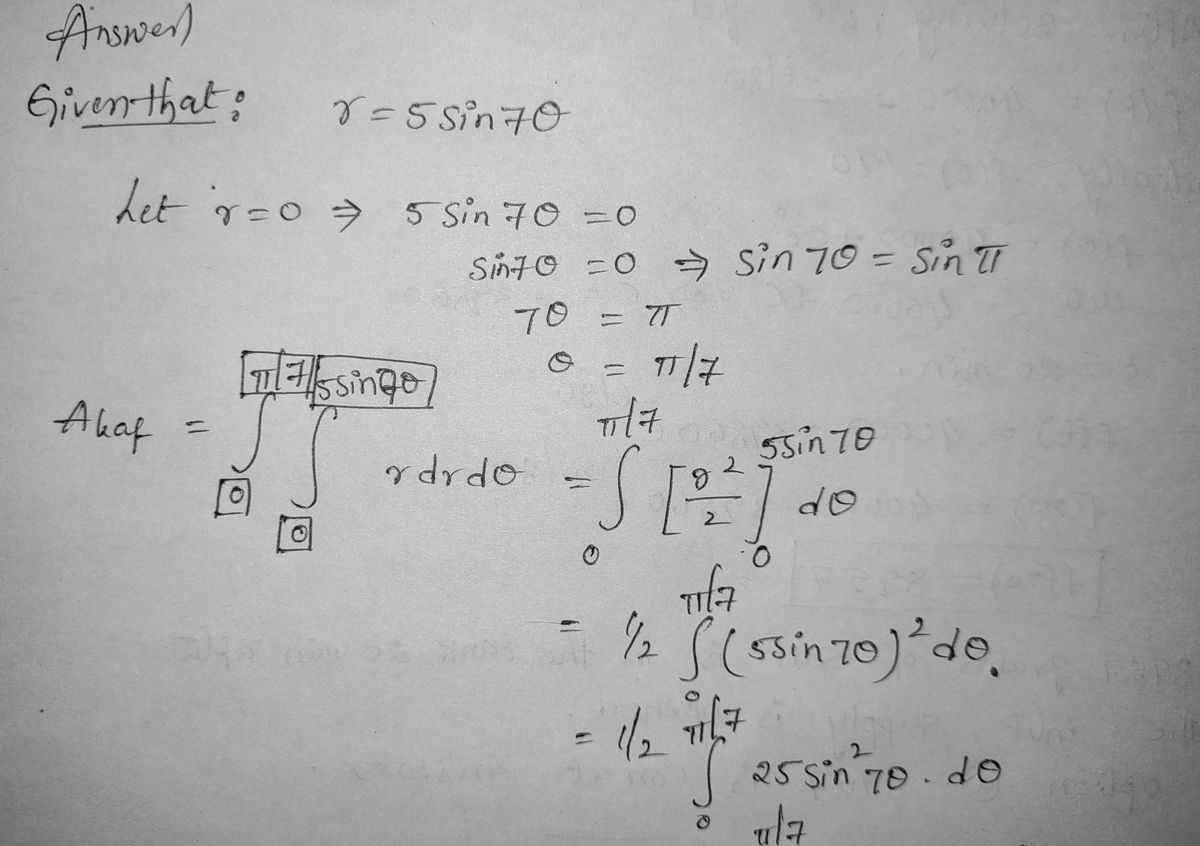 Answer)
Given that: r = 5 sin 7θ
Let r = 0 ⇒ 5 sin 7θ = 0
sin 7θ = 0 ⇒ sin 7θ = sin π
7θ = π
θ = π/7
Aleaf = ∫_0^{π/7} ∫_0^{5 sin 7θ} r dr dθ = ∫_0^{π/7} [r²/2]_0^{5 sin 7θ} dθ
= 1/2 ∫_0^{π/7} (5 sin 7θ)² dθ.
= 1/2 ∫_0^{π/7} 25 sin² 7θ . dθ
π/7